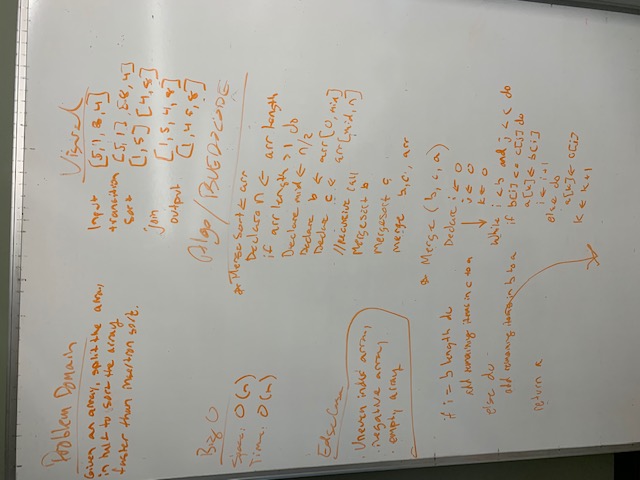 Problem Domain
Given an array, split the array
in half to sort the array
faster than insertion sort.
Visual
Input [5,1,8,4]
transition [5,1], [8,4]
Sort [1,5] [4,8]
join [1,5,4,8]
output [1,4,5,8]
Big O
Space: O(n)
Time: O(n)
Edge Case
. Uneven index array,
. negative array
. empty array
Algo/PSUEDOCODE
Merge Sort ← arr
Declare n ← arr length
if arr length > 1 do
Declare mid ← n/2
Declare b ← arr[0, mid]
Declare c ← arr[mid, n]
//recursive call
Mergesort b
Mergesort c
merge b, c, arr
Merge (b, c, a)
Declare i ← 0
j ← 0
k ← 0
While i < b and j < c do
if b[i] <= c[j] do
a[k] ← b[i]
i ← i+1
else do
a[k] ← c[j]
k ← k+1
if i = b length do
add remaining items in c to a
else do
add remaining items in b to a
return a